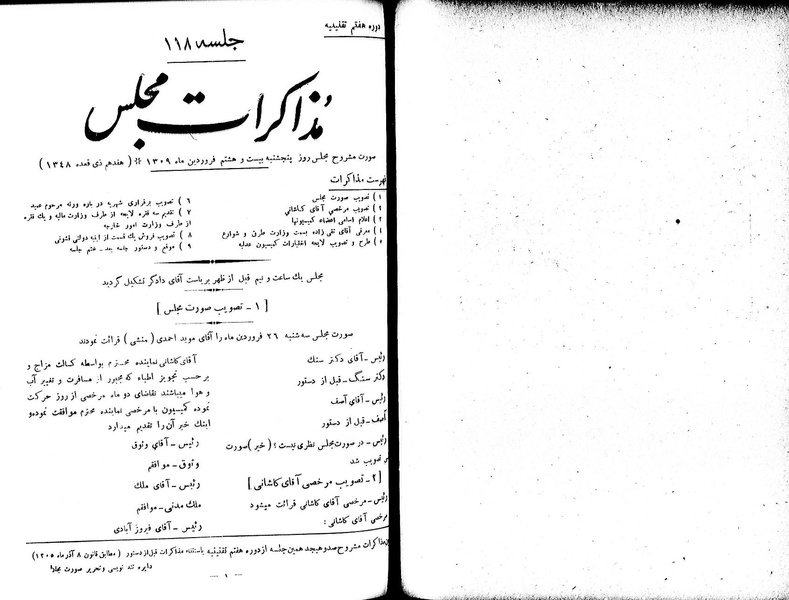 دوره هفتم تقنینیه
جلسه ۱۱۸
مذاکرات مجلس
صورت مشروح مجلس روز پنجشنبه بیست و هشتم فروردین ماه ۱۳۰۹ * ( هفدهم ذی قعده ۱۳۴۸ )
فهرست مذاکرات
۱ ) تصویب صورت مجلس
۲ ) تصویب مرخصی آقای کاشانی
۳ ) اعلام اسامی اعضاء کمیسیونها
۴ ) معرفی آقای تقی زاده بسمت وزارت طرق و شوارع
۵ ) طرح و تصویب لایحه اختیارات کمیسیون عدلیه
۶ ) تصویب برقراری شهریه در باره ورثه مرحوم عمید
۷ ) تقدیم سه فقره لایحه از طرف وزارت مالیه و یك فقره
از طرف وزارت امور خارجه
۸ ) تصویب فروش یك قسمت از ابنیه دولتی قشونی
۹ ) موقع و دستور جلسه بعد ـ ختم جلسه
مجلس یك ساعت و نیم قبل از ظهر بریاست آقای دادگر تشکیل گردید
[ ۱ ـ تصویب صورت مجلس ]
صورت مجلس سه شنبه ۲۶ فروردین ماه را آقای موید احمدی ( منشی ) قرائت نمودند
رئیس ـ آقای دکتر سنك
دکتر سنگ ـ قبل از دستور
رئیس ـ آقای آصف
آصف ـ قبل از دستور
رئیس ـ در صورت مجلس نظری نیست؟ ( خیر ) صورت
تصویب شد
[ ۲ ـ تصویب مرخصی آقای کاشانی ]
رئیس ـ مرخصی آقای کاشانی قرائت میشود
مرخصی آقای کاشانی :
آقای کاشانی نماینده محترم بواسطه کسالت مزاج و
بر حسب تجویز اطباء که مجبور از مسافرت و تغییر آب
و هوا میباشند تقاضای دو ماه مرخصی از روز حرکت
نموده کمیسیون با مرخصی نماینده محترم موافقت نموده و
اینك خبر آن را تقدیم میدارد
رئیس ـ آقای وثوق
وثوق ـ موافقم
رئیس ـ آقای ملك
ملك مدنی ـ موافقم
رئیس ـ آقای فیروز آبادی
مذاکرات مشروح صد و هیجدهمین جلسه از دوره هفتم تقنینیه باستثناء مذاکرات قبل از دستور ( مطابق قانون ۸ آذر ماه ۱۳۰۵ )
دایره تند نویسی و تحریر صورت مجلس
— ۱ —